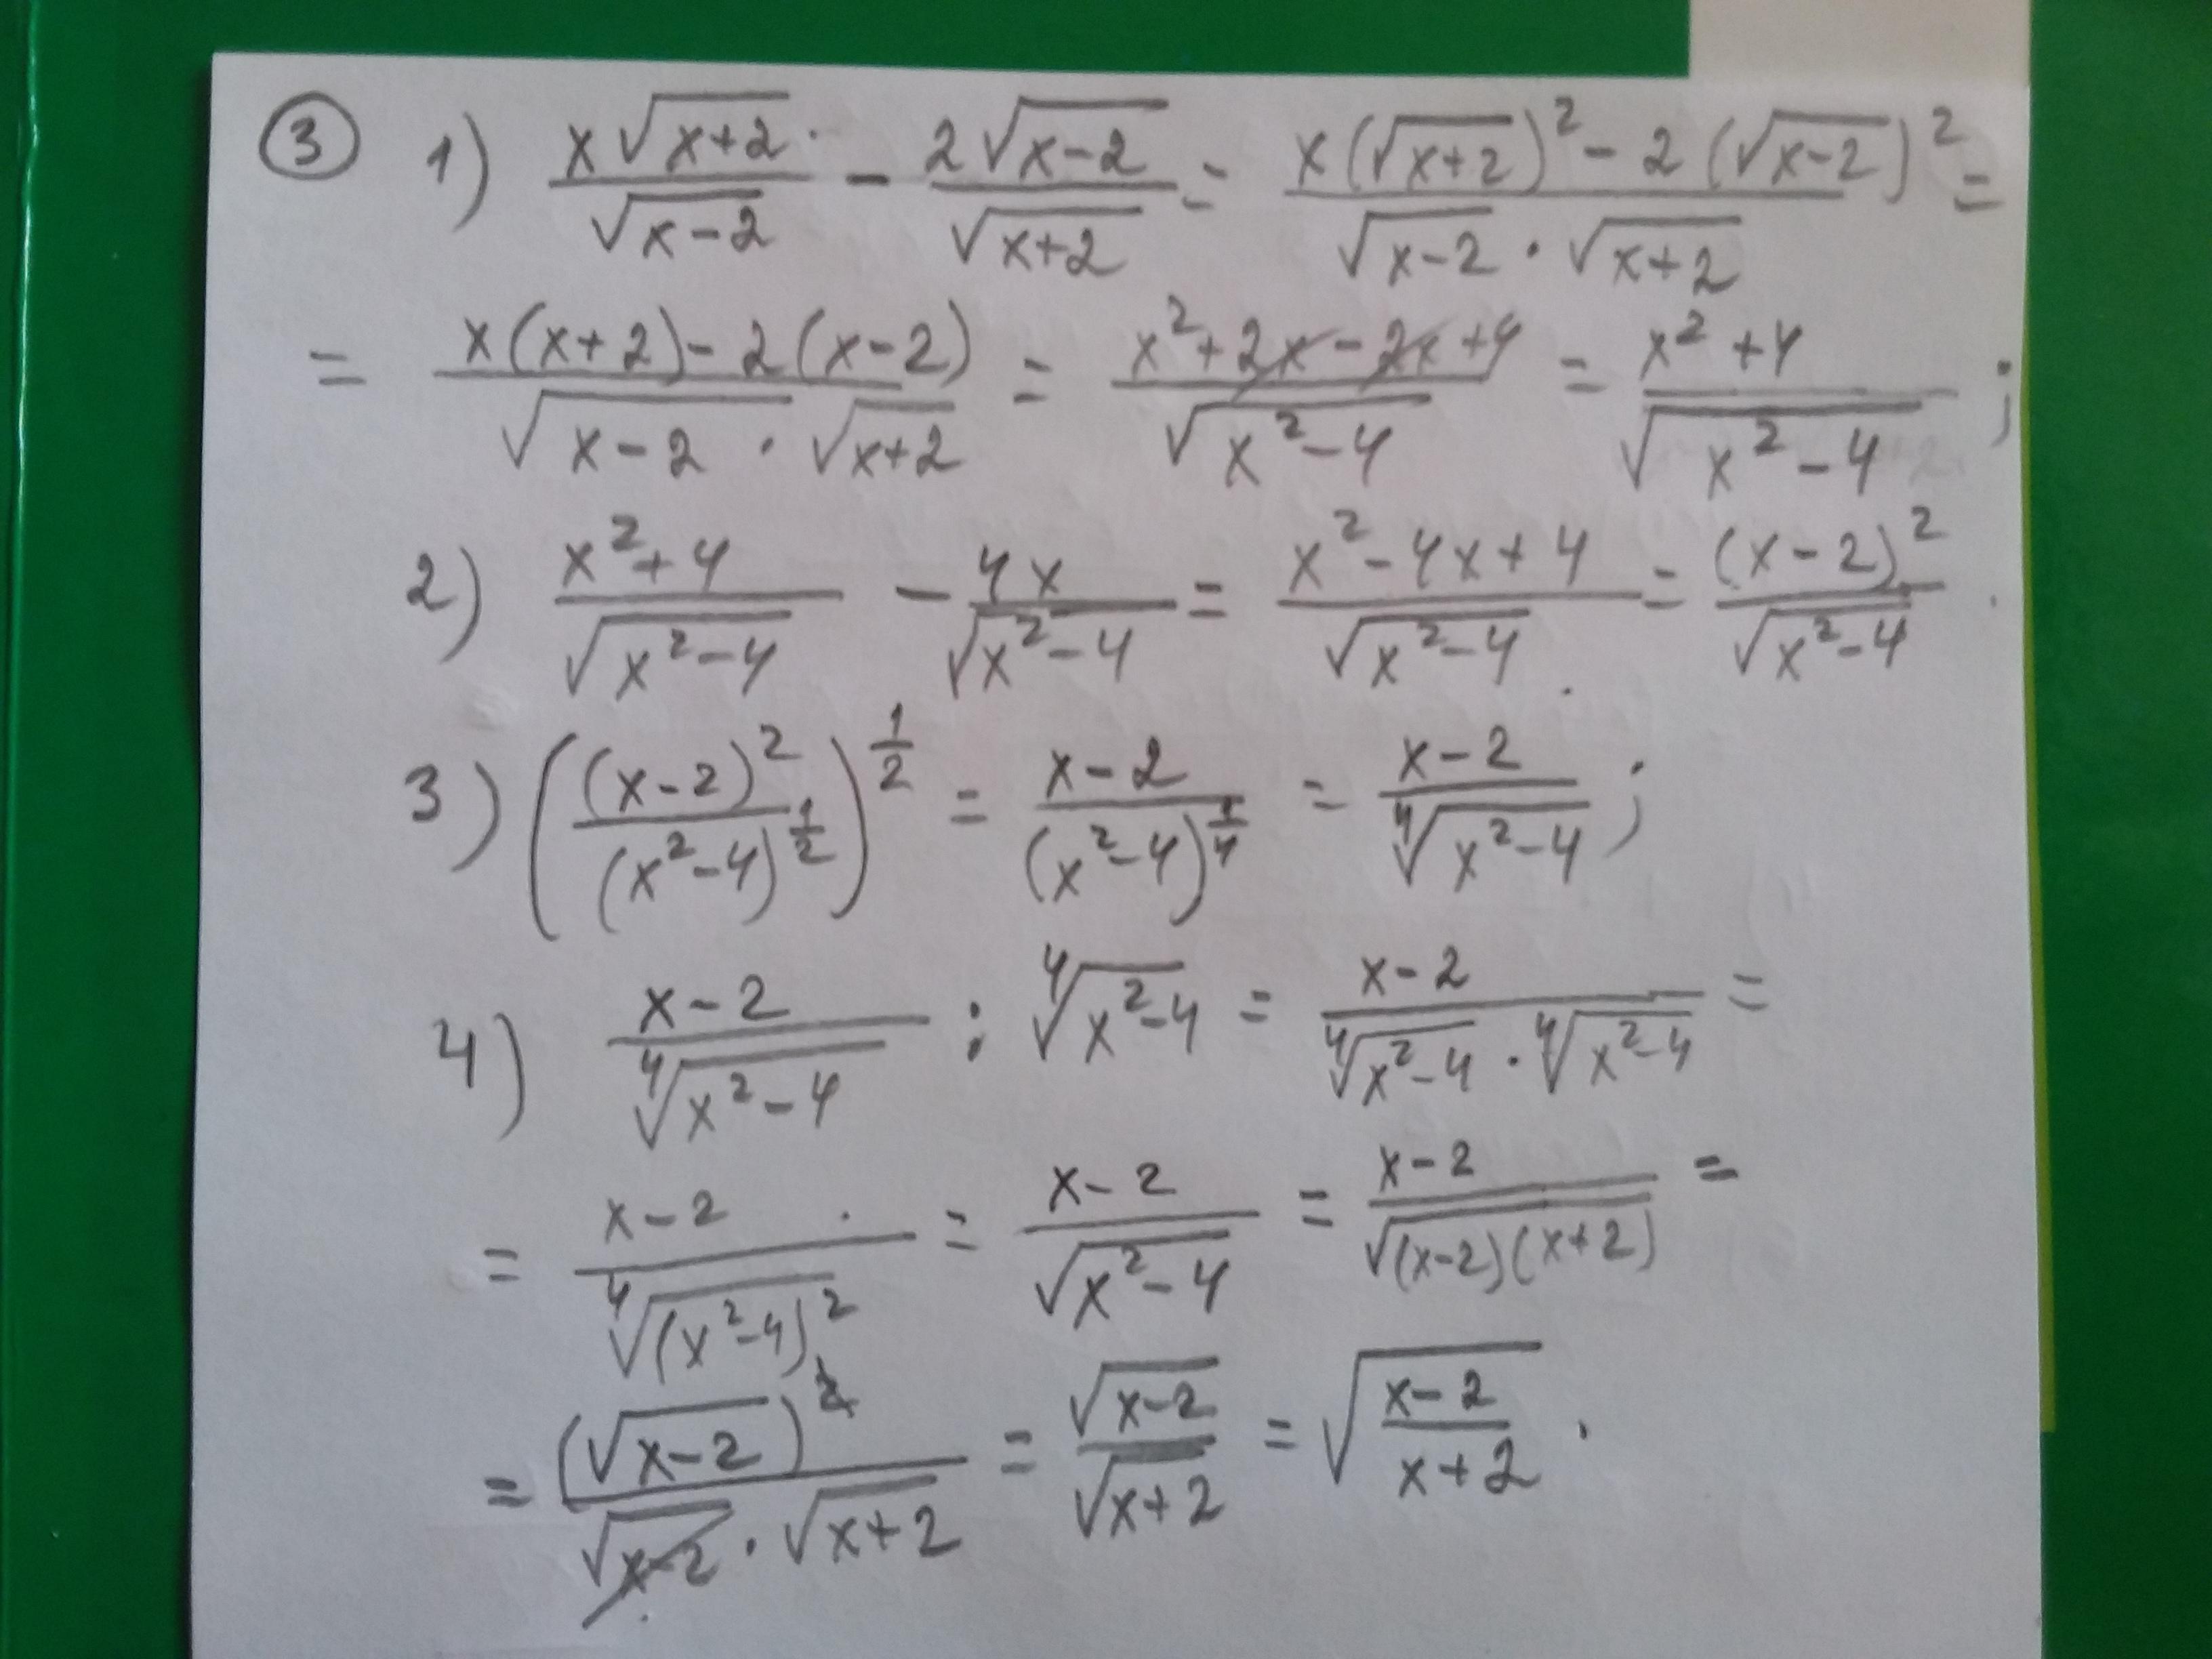 ③ 1) x√(x+2)/√(x-2) - 2√(x-2)/√(x+2) = (x(√(x+2))² - 2(√(x-2))²)/(√(x-2) · √(x+2)) =
= (x(x+2) - 2(x-2))/(√(x-2) · √(x+2)) = (x² + 2x - 2x + 4)/√(x²-4) = (x² + 4)/√(x²-4) ;
2) (x² + 4)/√(x²-4) - 4x/√(x²-4) = (x² - 4x + 4)/√(x²-4) = (x-2)²/√(x²-4) .
3) ((x-2)²/(x²-4)^(1/2))^(1/2) = (x-2)/(x²-4)^(1/4) = (x-2)/⁴√(x²-4) ;
4) (x-2)/⁴√(x²-4) : ⁴√(x²-4) = (x-2)/(⁴√(x²-4) · ⁴√(x²-4)) =
= (x-2)/⁴√((x²-4)²) = (x-2)/√(x²-4) = (x-2)/√((x-2)(x+2)) =
= (√(x-2))²/(√(x-2) · √(x+2)) = √(x-2)/√(x+2) = √((x-2)/(x+2)) .